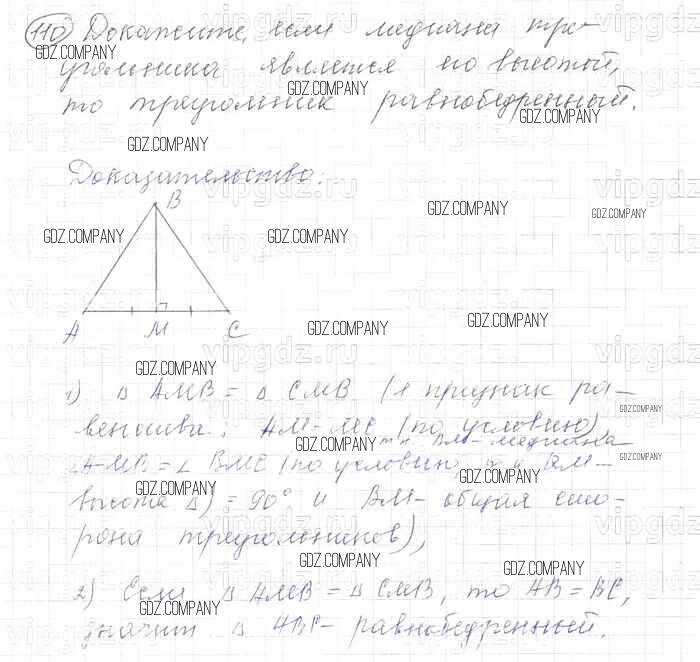 110) Докажите, если медиана тре-
угольника является его высотой,
то треугольник равнобедренный.
Доказательство:
B
A M C
1) Δ AMB = Δ CMB (1 признак ра-
венства: AM = MC (по условию),
т.к. BM - медиана
∠AMB = ∠ BMC (по условию, т.к. BM -
высота Δ) = 90° и BM - общая сто-
рона треугольников),
2) Если Δ AMB = Δ CMB, то AB = BC,
значит Δ ABC - равнобедренный.
GDZ.COMPANY
vipgdz.ru